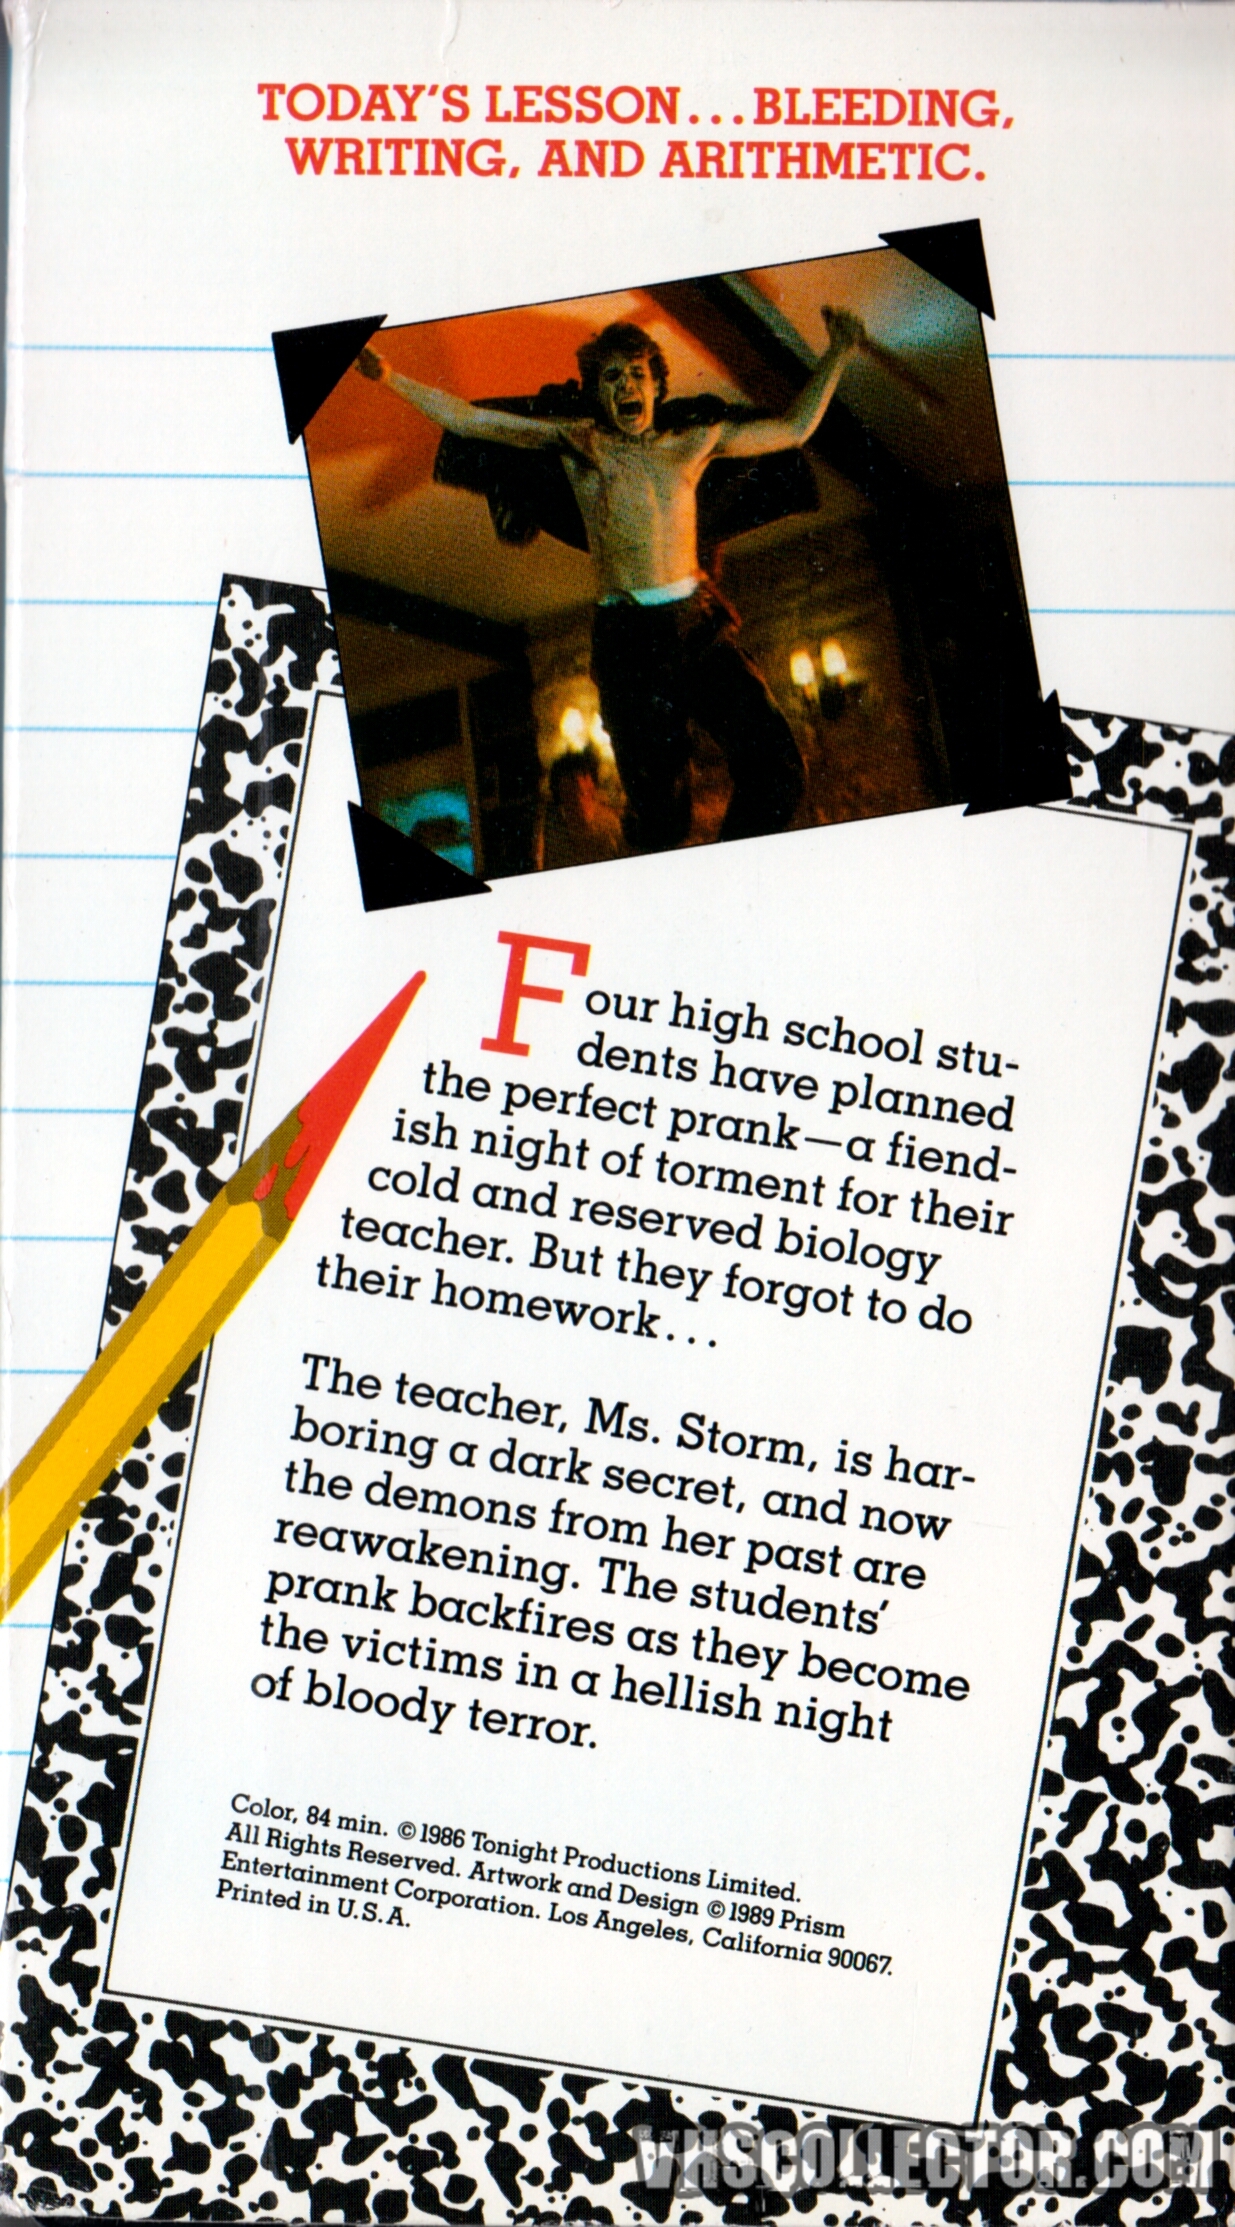 TODAY'S LESSON...BLEEDING,
WRITING, AND ARITHMETIC.
Four high school stu-
dents have planned
the perfect prank—a fiend-
ish night of torment for their
cold and reserved biology
teacher. But they forgot to do
their homework...
The teacher, Ms. Storm, is har-
boring a dark secret, and now
the demons from her past are
reawakening. The students'
prank backfires as they become
the victims in a hellish night
of bloody terror.
Color, 84 min. ©1986 Tonight Productions Limited.
All Rights Reserved. Artwork and Design ©1989 Prism
Entertainment Corporation. Los Angeles, California 90067.
Printed in U.S.A.
VHSCOLLECTOR.COM